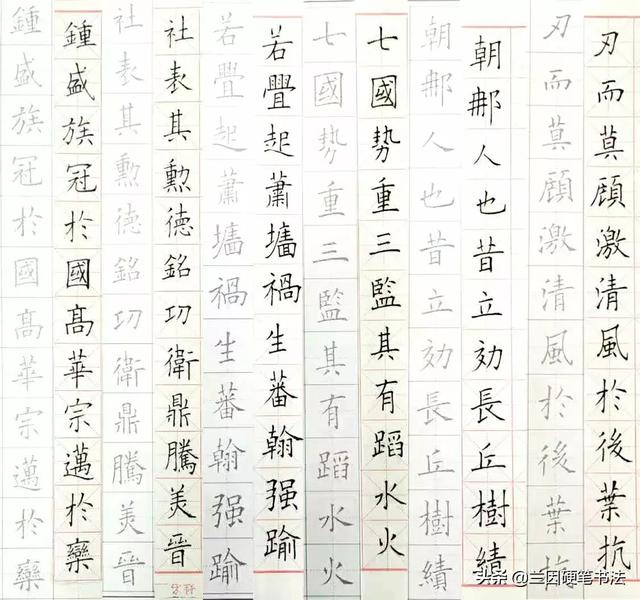 刃而莫顧激清風於後葉抗
刃而莫顧激清風於後葉抗
朝邦人也昔立効長丘樹績
朝邦人也昔立効長丘樹績
七國勢重三監其有蹈水火
七國勢重三監其有蹈水火
若舋起蕭墻禍生蕃翰强踰
若舋起蕭墻禍生蕃翰强踰
社表其勲德銘功衛鼎騰美晉
社表其勲德銘功衛鼎騰美晉
鍾盛族冠於國髙華宗邁於欒
鍾盛族冠於國髙華宗邁於欒
头条 @兰因硬笔书法